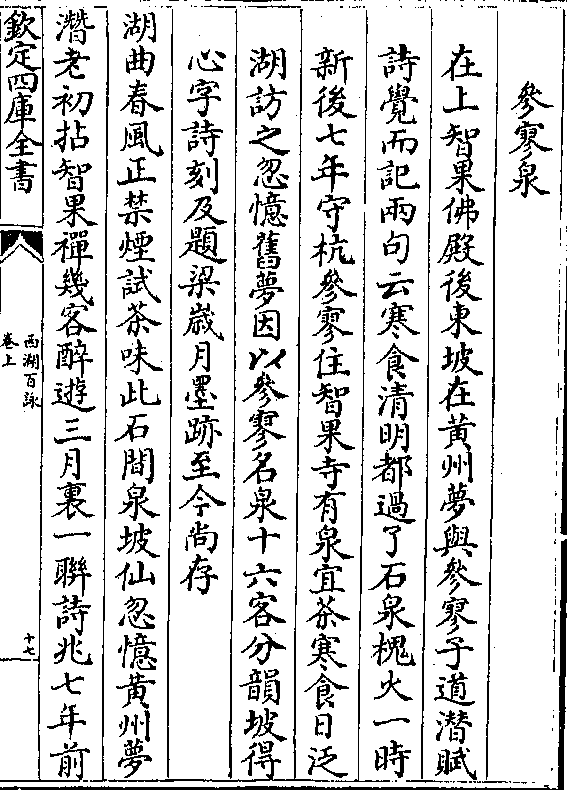 參寥泉
在上智果佛殿後東坡在黃州夢與參寥子道潛賦
詩覺而記兩句云寒食清明都過了石泉槐火一時
新後七年守杭參寥住智果寺有泉宜茶寒食日泛
湖訪之忽憶舊夢因以參寥名泉十六客分韻坡得
心字詩刻及題梁歲月墨跡至今尚存
湖曲春風正禁煙試茶味此石間泉坡仙忽憶黃州夢
潛老初拈智果禪幾客醉遊三月裏一聯詩兆七年前
欽定四庫全書
西湖百詠
卷上
十七